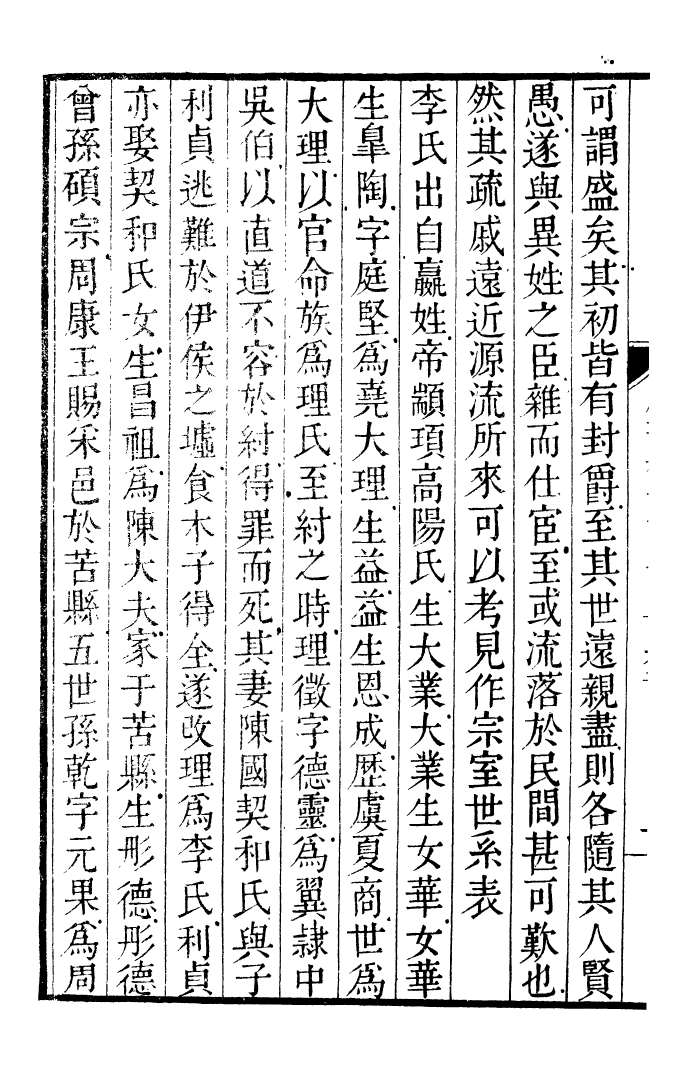 可謂盛矣其初皆有封爵至其世遠親盡則各隨其人賢
愚遂與異姓之臣雜而仕宦至或流落於民間甚可歎也
然其疏戚遠近源流所來可以考見作宗室世系表
李氏出自嬴姓帝顓頊高陽氏生大業大業生女華女華
生皐陶字庭堅爲堯大理生益益生恩成歷虞夏商世爲
大理以官命族爲理氏至紂之時理徵字德靈爲翼隷中
吳伯以直道不容於紂得罪而死其妻陳國契和氏與子
利貞逃難於伊侯之墟食木子得全遂改理爲李氏利貞
亦娶契和氏女生昌祖爲陳大夫家于苦縣生彤德彤德
曾孫碩宗周康王賜采邑於苦縣五世孫乾字元果爲周